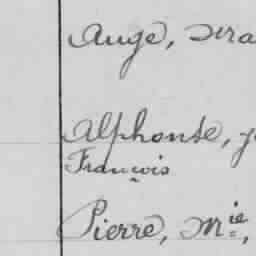 Auge, Sera
Alphonse, J
François
Pierre, Mie,